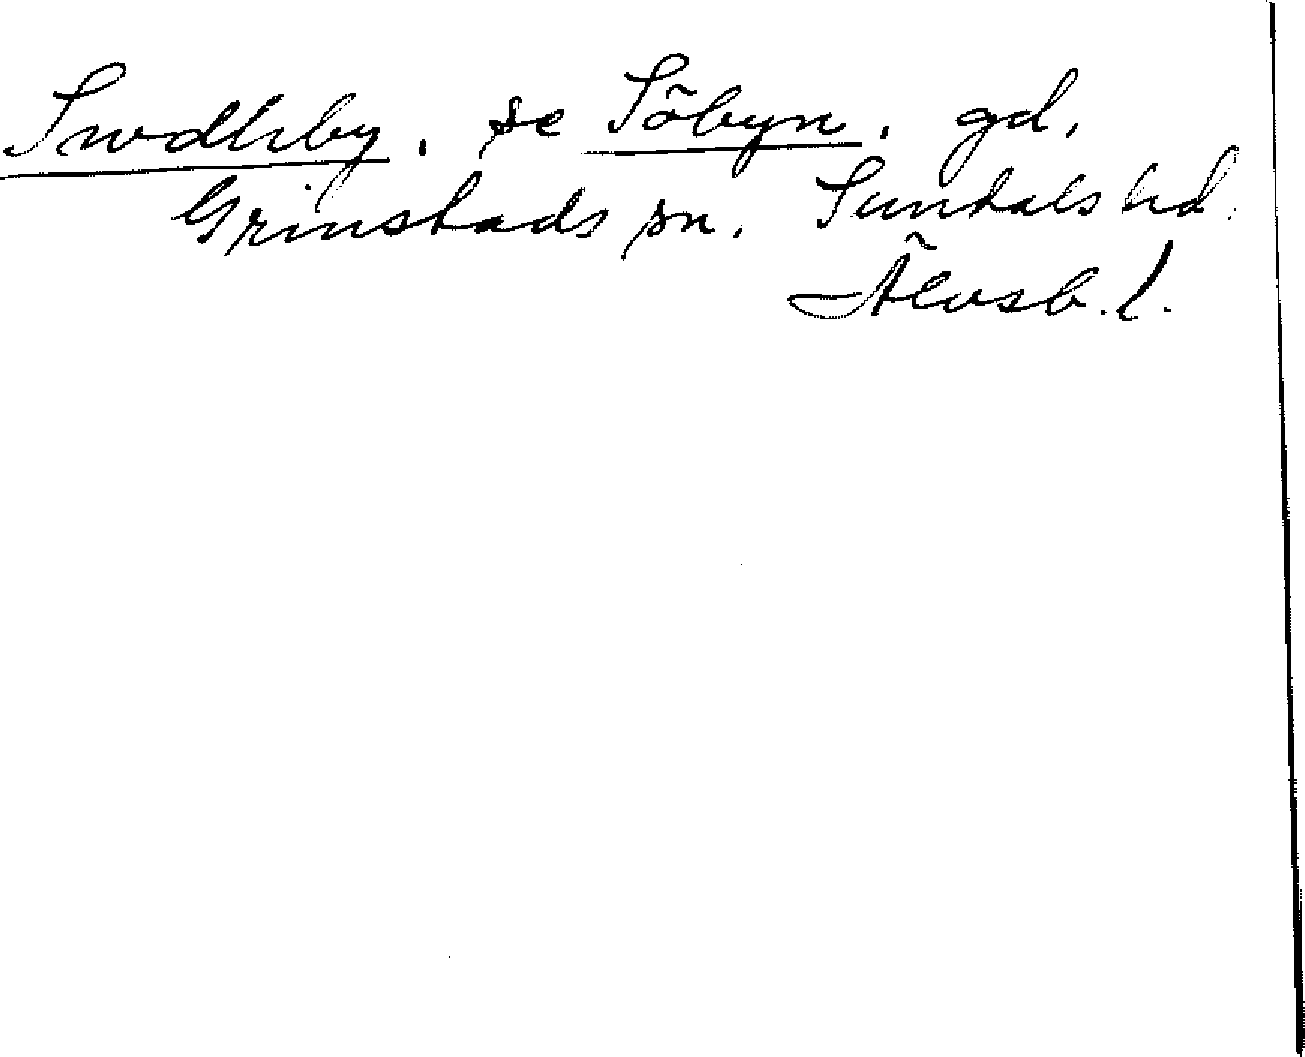 Swdhby, se Söbyn, gd,
Grinstads sn, Sundals hd.
Älvsb. l.